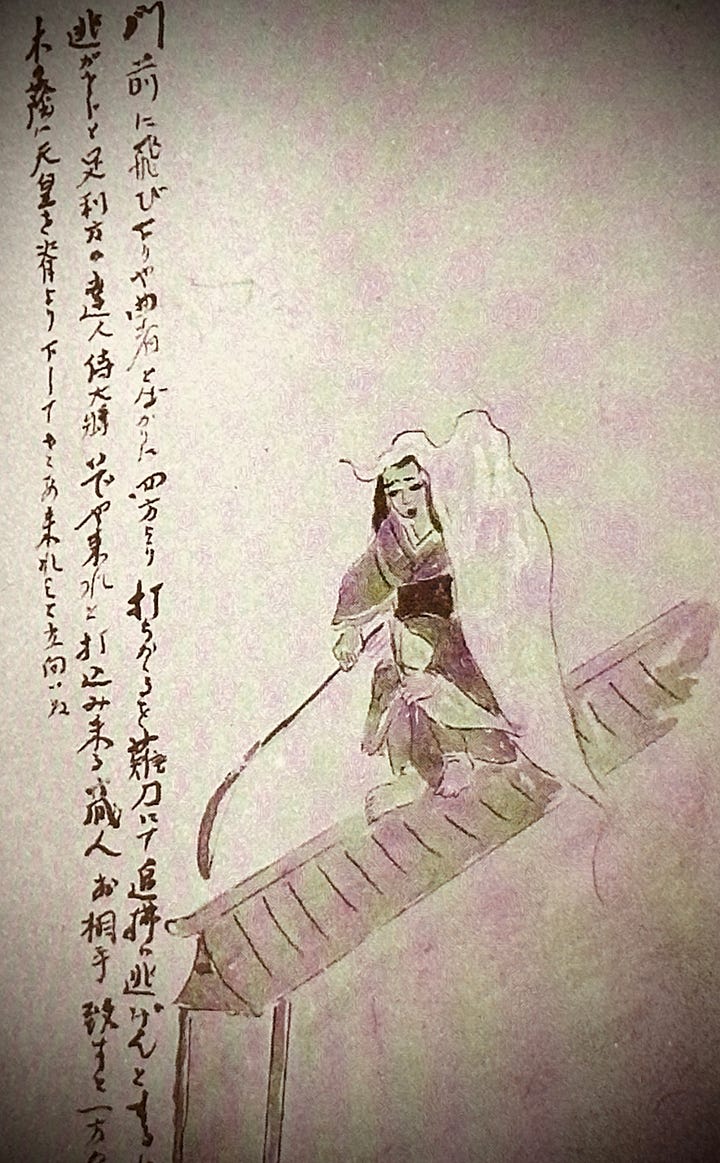 門前に飛び下りや曲者とばかりに四方より打ちかかるを薙刀にて追拂ひ逃げんとする
逃が と足利方の達人侍大将 来れと打込み来る 職人お相手致すと一方の
木の蔭に天皇を背より下してさあ来れ と立向いぬ